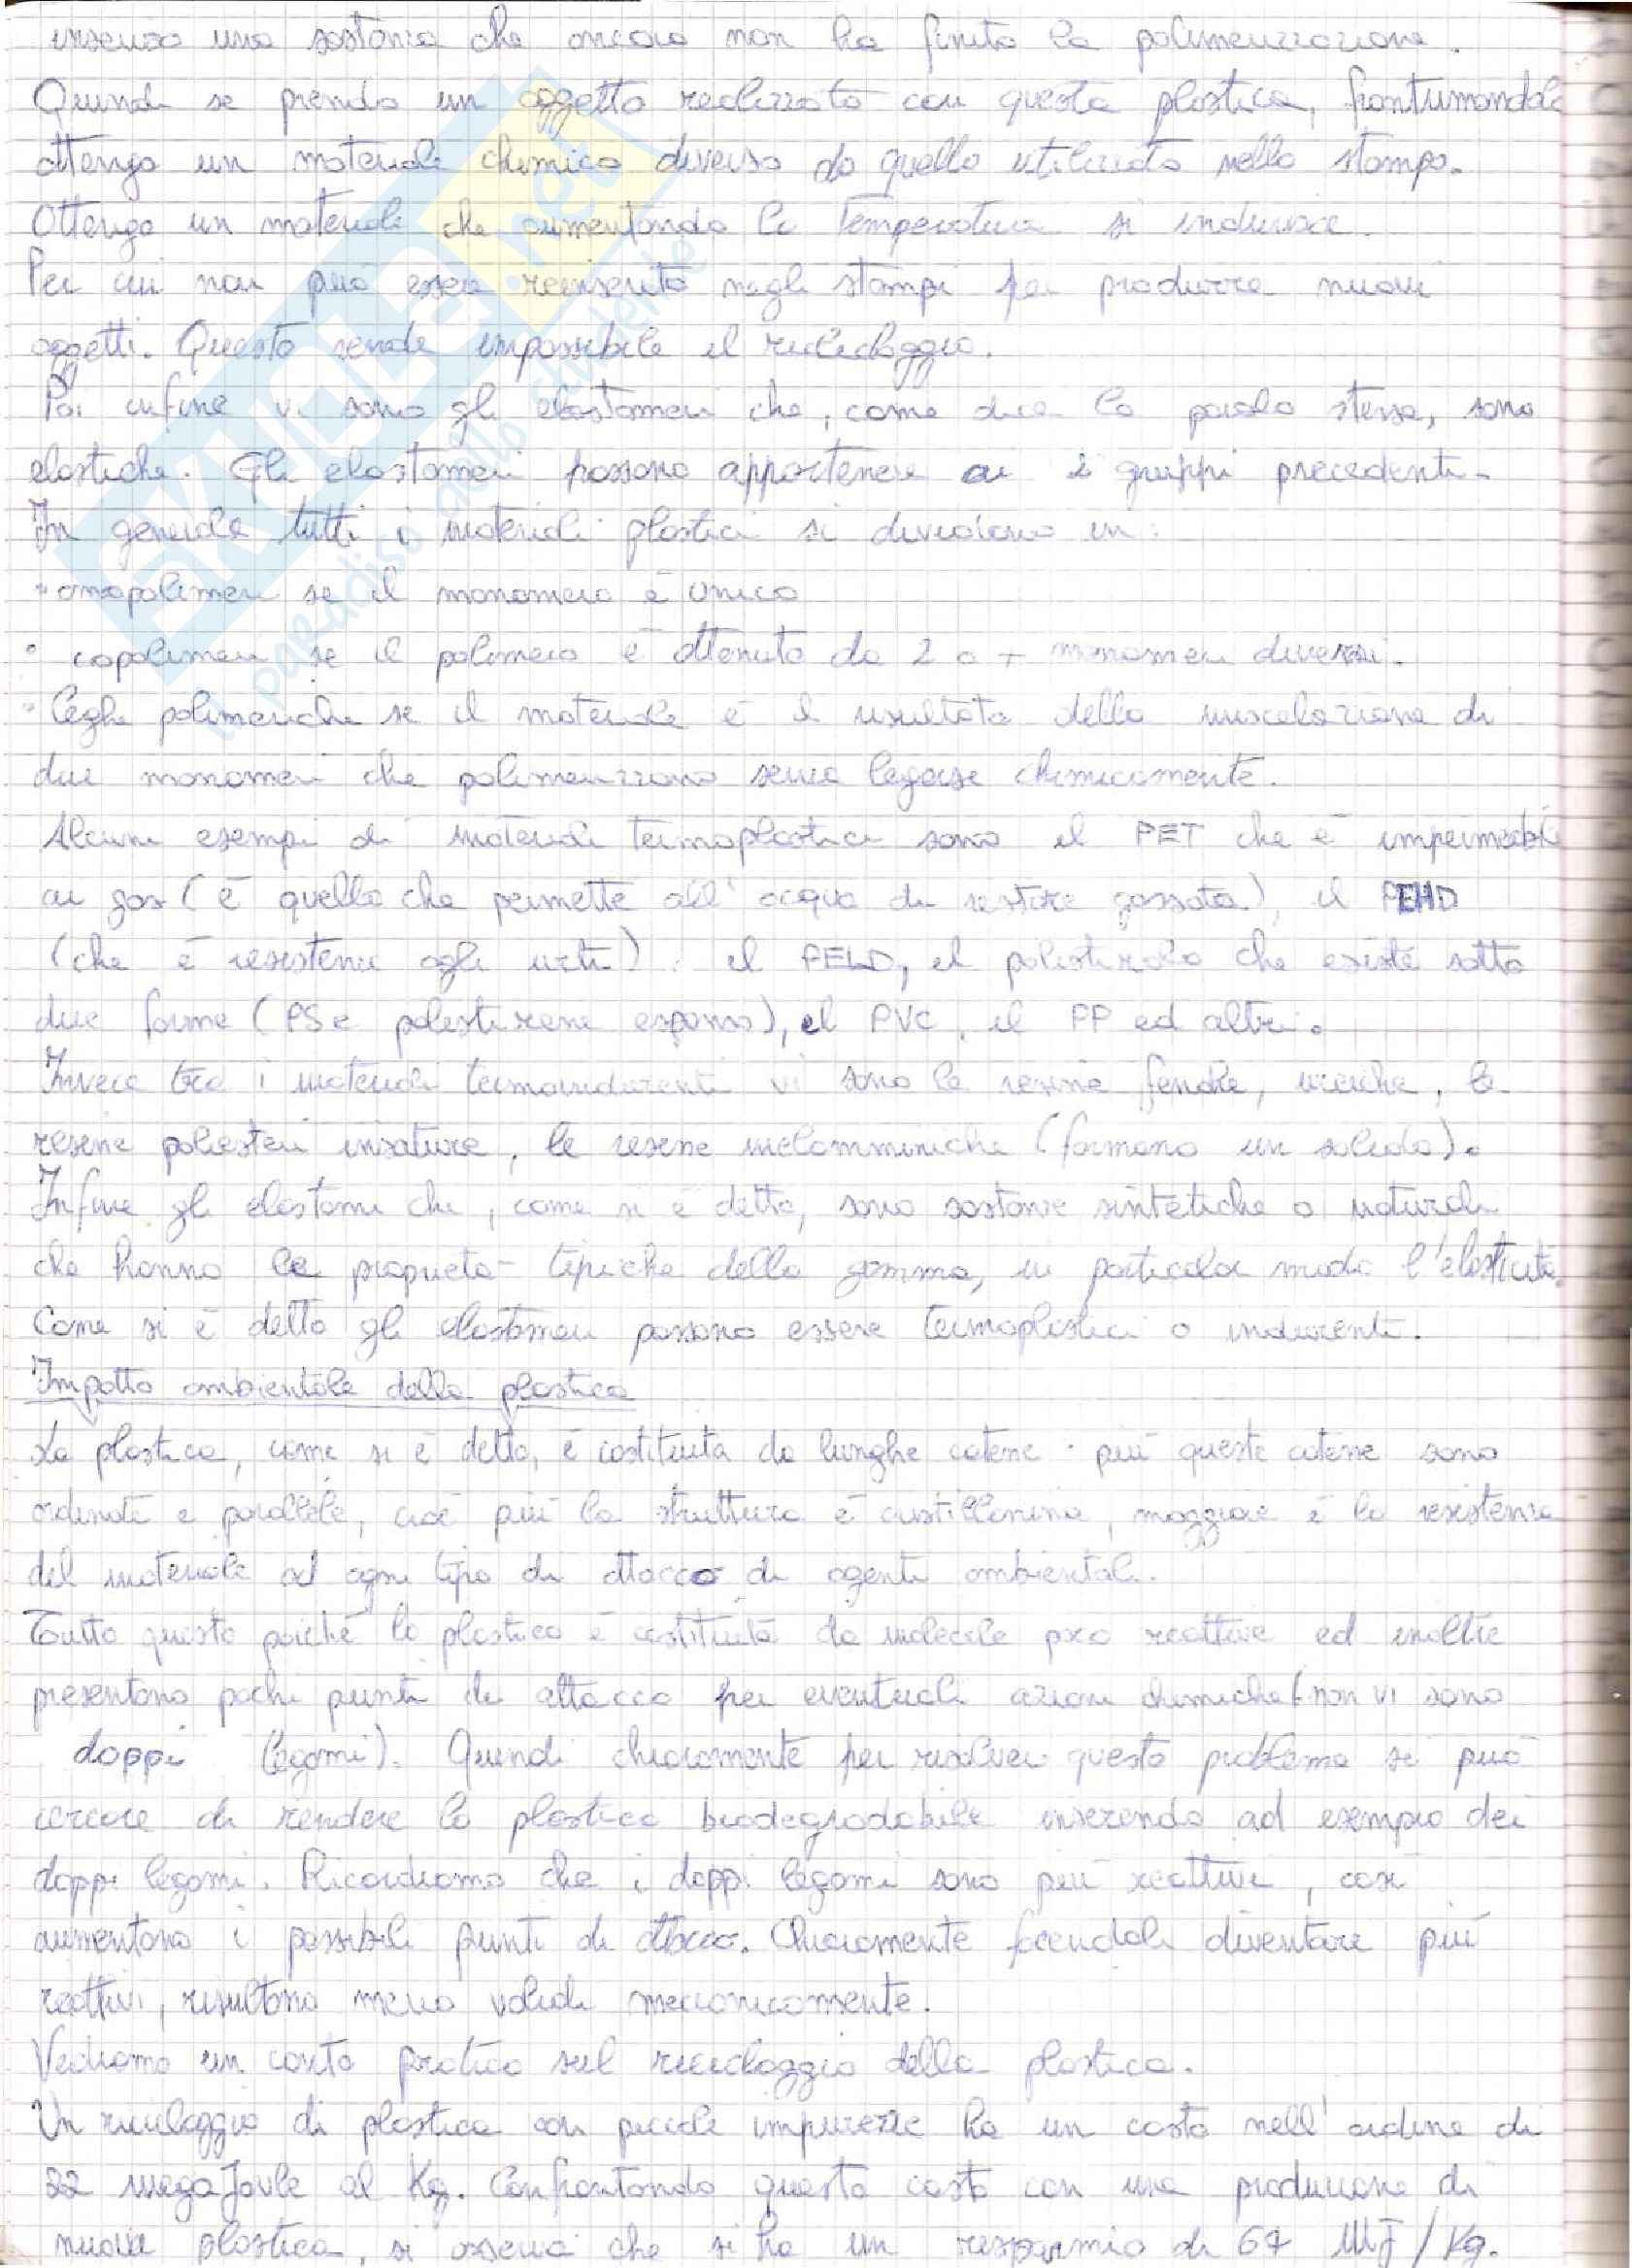 inserisco una sostanza che ancora non ha finito la polimerizzazione.
Quindi se prendo un oggetto realizzato con questa plastica, frantumandolo
ottengo un materiale chimico diverso da quello utilizzato nello stampo.
Ottengo un materiale che aumentando la Temperatura si indurisce.
Per cui non può essere reinserito negli stampi per produrre nuovi
oggetti. Questo rende impossibile il riciclaggio.
Poi infine vi sono gli elastomeri che, come dice la parola stessa, sono
elastiche. Gli elastomeri possono appartenere ai 2 gruppi precedenti.
In generale tutti i materiali plastici si dividono in:
• omopolimeri se il monomero è unico
• copolimeri se il polimero è ottenuto da 2 o + monomeri diversi.
• leghe polimeriche se il materiale è il risultato della miscelazione di
due monomeri che polimerizzano senza legarsi chimicamente.
Alcuni esempi di materiali termoplastici sono il PET che è impermeabile
ai gas (è quello che permette all'acqua di restare gassata), il PEHD
(che è resistente agli urti), il PELD, il polistirolo che esiste sotto
due forme (PS e polistirene espanso), il PVC, il PP ed altri.
Invece tra i materiali termoindurenti vi sono le resine fenoliche, ureiche, le
resine poliesteri insature, le resine melamminiche (formano un solido).
Infine gli elastomi che, come si è detto, sono sostanze sintetiche o naturali
che hanno le proprietà tipiche della gomma, in particolar modo l'elasticità.
Come si è detto gli elastomeri possono essere termoplastici o indurenti.
Impatto ambientale della plastica
La plastica, come si è detto, è costituita da lunghe catene: più queste catene sono
ordinate e parallele, cioè più la struttura è cristallinina, maggiore è la resistenza
del materiale ad ogni tipo di attacco di agenti ambientali.
Tutto questo poiché la plastica è costituita da molecole poco reattive ed inoltre
presentano pochi punti di attacco per eventuali azioni chimiche (non vi sono
doppi legami). Quindi chiaramente per risolvere questo problema si può
cercare di rendere la plastica biodegradabile inserendo ad esempio dei
doppi legami. Ricordiamo che i doppi legami sono più reattivi, così
aumentano i possibili punti di attacco. Chiaramente facendoli diventare più
reattivi, risultano meno validi meccanicamente.
Vediamo un conto pratico sul riciclaggio della plastica.
Un riciclaggio di plastica con piccole impurezze ha un costo nell'ordine di
22 mega Joule al Kg. Confrontando questo costo con una produzione di
nuova plastica, si osserva che si ha un risparmio di 67 MJ/Kg.
SKUOLA.net
il paradiso dello studente